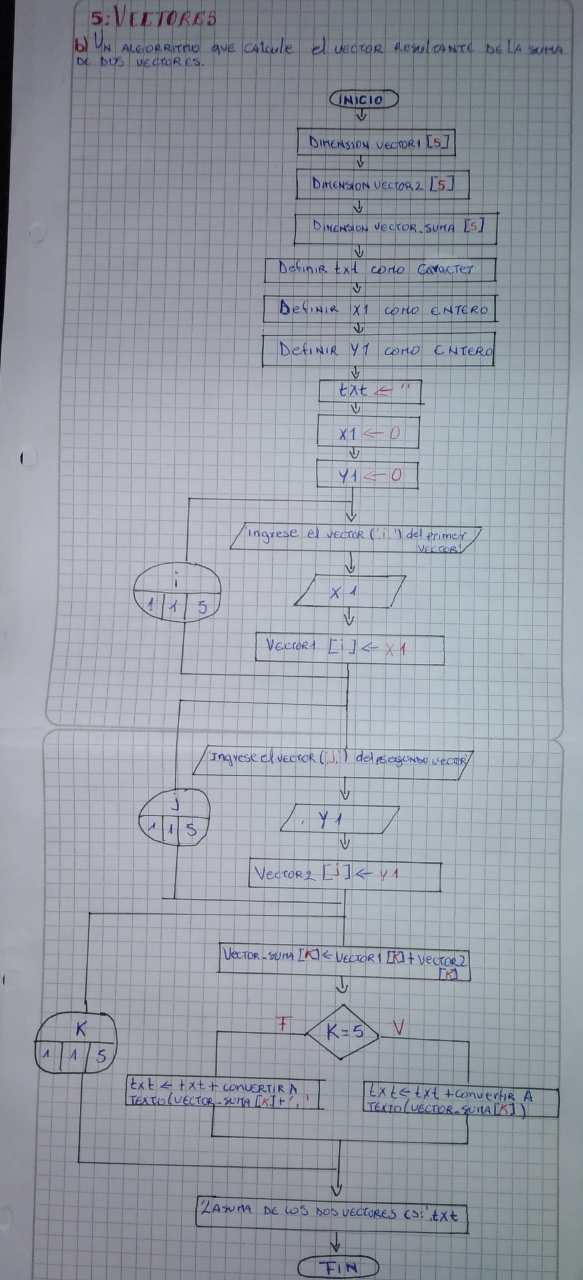 5: VECTORES
b) UN ALGORRITMO QUE CALCULE el VECTOR RESULTANTE DE LA SUMA
DE DOS VECTORES.
INICIO
DIMENSION VECTOR1 [5]
DIMENSION VECTOR2 [5]
DIMENSION VECTOR_SUMA [5]
DefiNir txt como Caracter
DefiNIR X1 como ENTERO
DefiNIR Y1 como ENTERO
txt ← ''
X1 ← 0
Y1 ← 0
'ingrese el VECTOR (',i,') del primer
VECTOR'
i
1 1 5
X1
VECTOR1 [i] ← X1
'Ingrese el VECTOR (',j,') del SEGUNDO VECTOR'
j
1 1 5
Y1
VECTOR2 [j] ← Y1
VECTOR_SUMA [K] ← VECTOR1 [K] + VECTOR2
[K]
K
1 1 5
F
K=5
V
txt ← txt + CONVERTIR A
TEXTO(VECTOR_SUMA [K] + ','
txt ← txt + convertir A
TEXTO(VECTOR_SUMA[K])
'LA SUMA DE LOS DOS VECTORES ES:' txt
FIN